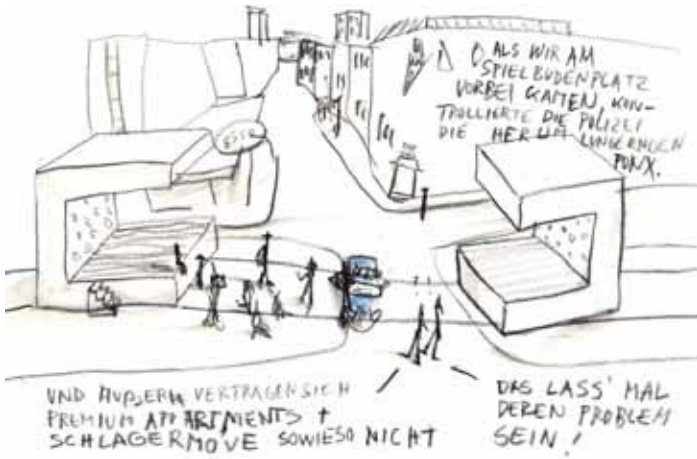 ALS WIR AM
SPIELBUDENPLATZ
VORBEI KAMEN, KON-
TROLLIERTE DIE POLIZEI
DIE HERUMLUNGERNDEN
PUNX.
ESSO
UND AUßERM VERTRAGEN SICH
PREMIUM APPARTMENTS +
SCHLAGERMOVE SOWIESO NICHT
DAS LASS' MAL
DEREN PROBLEM
SEIN!